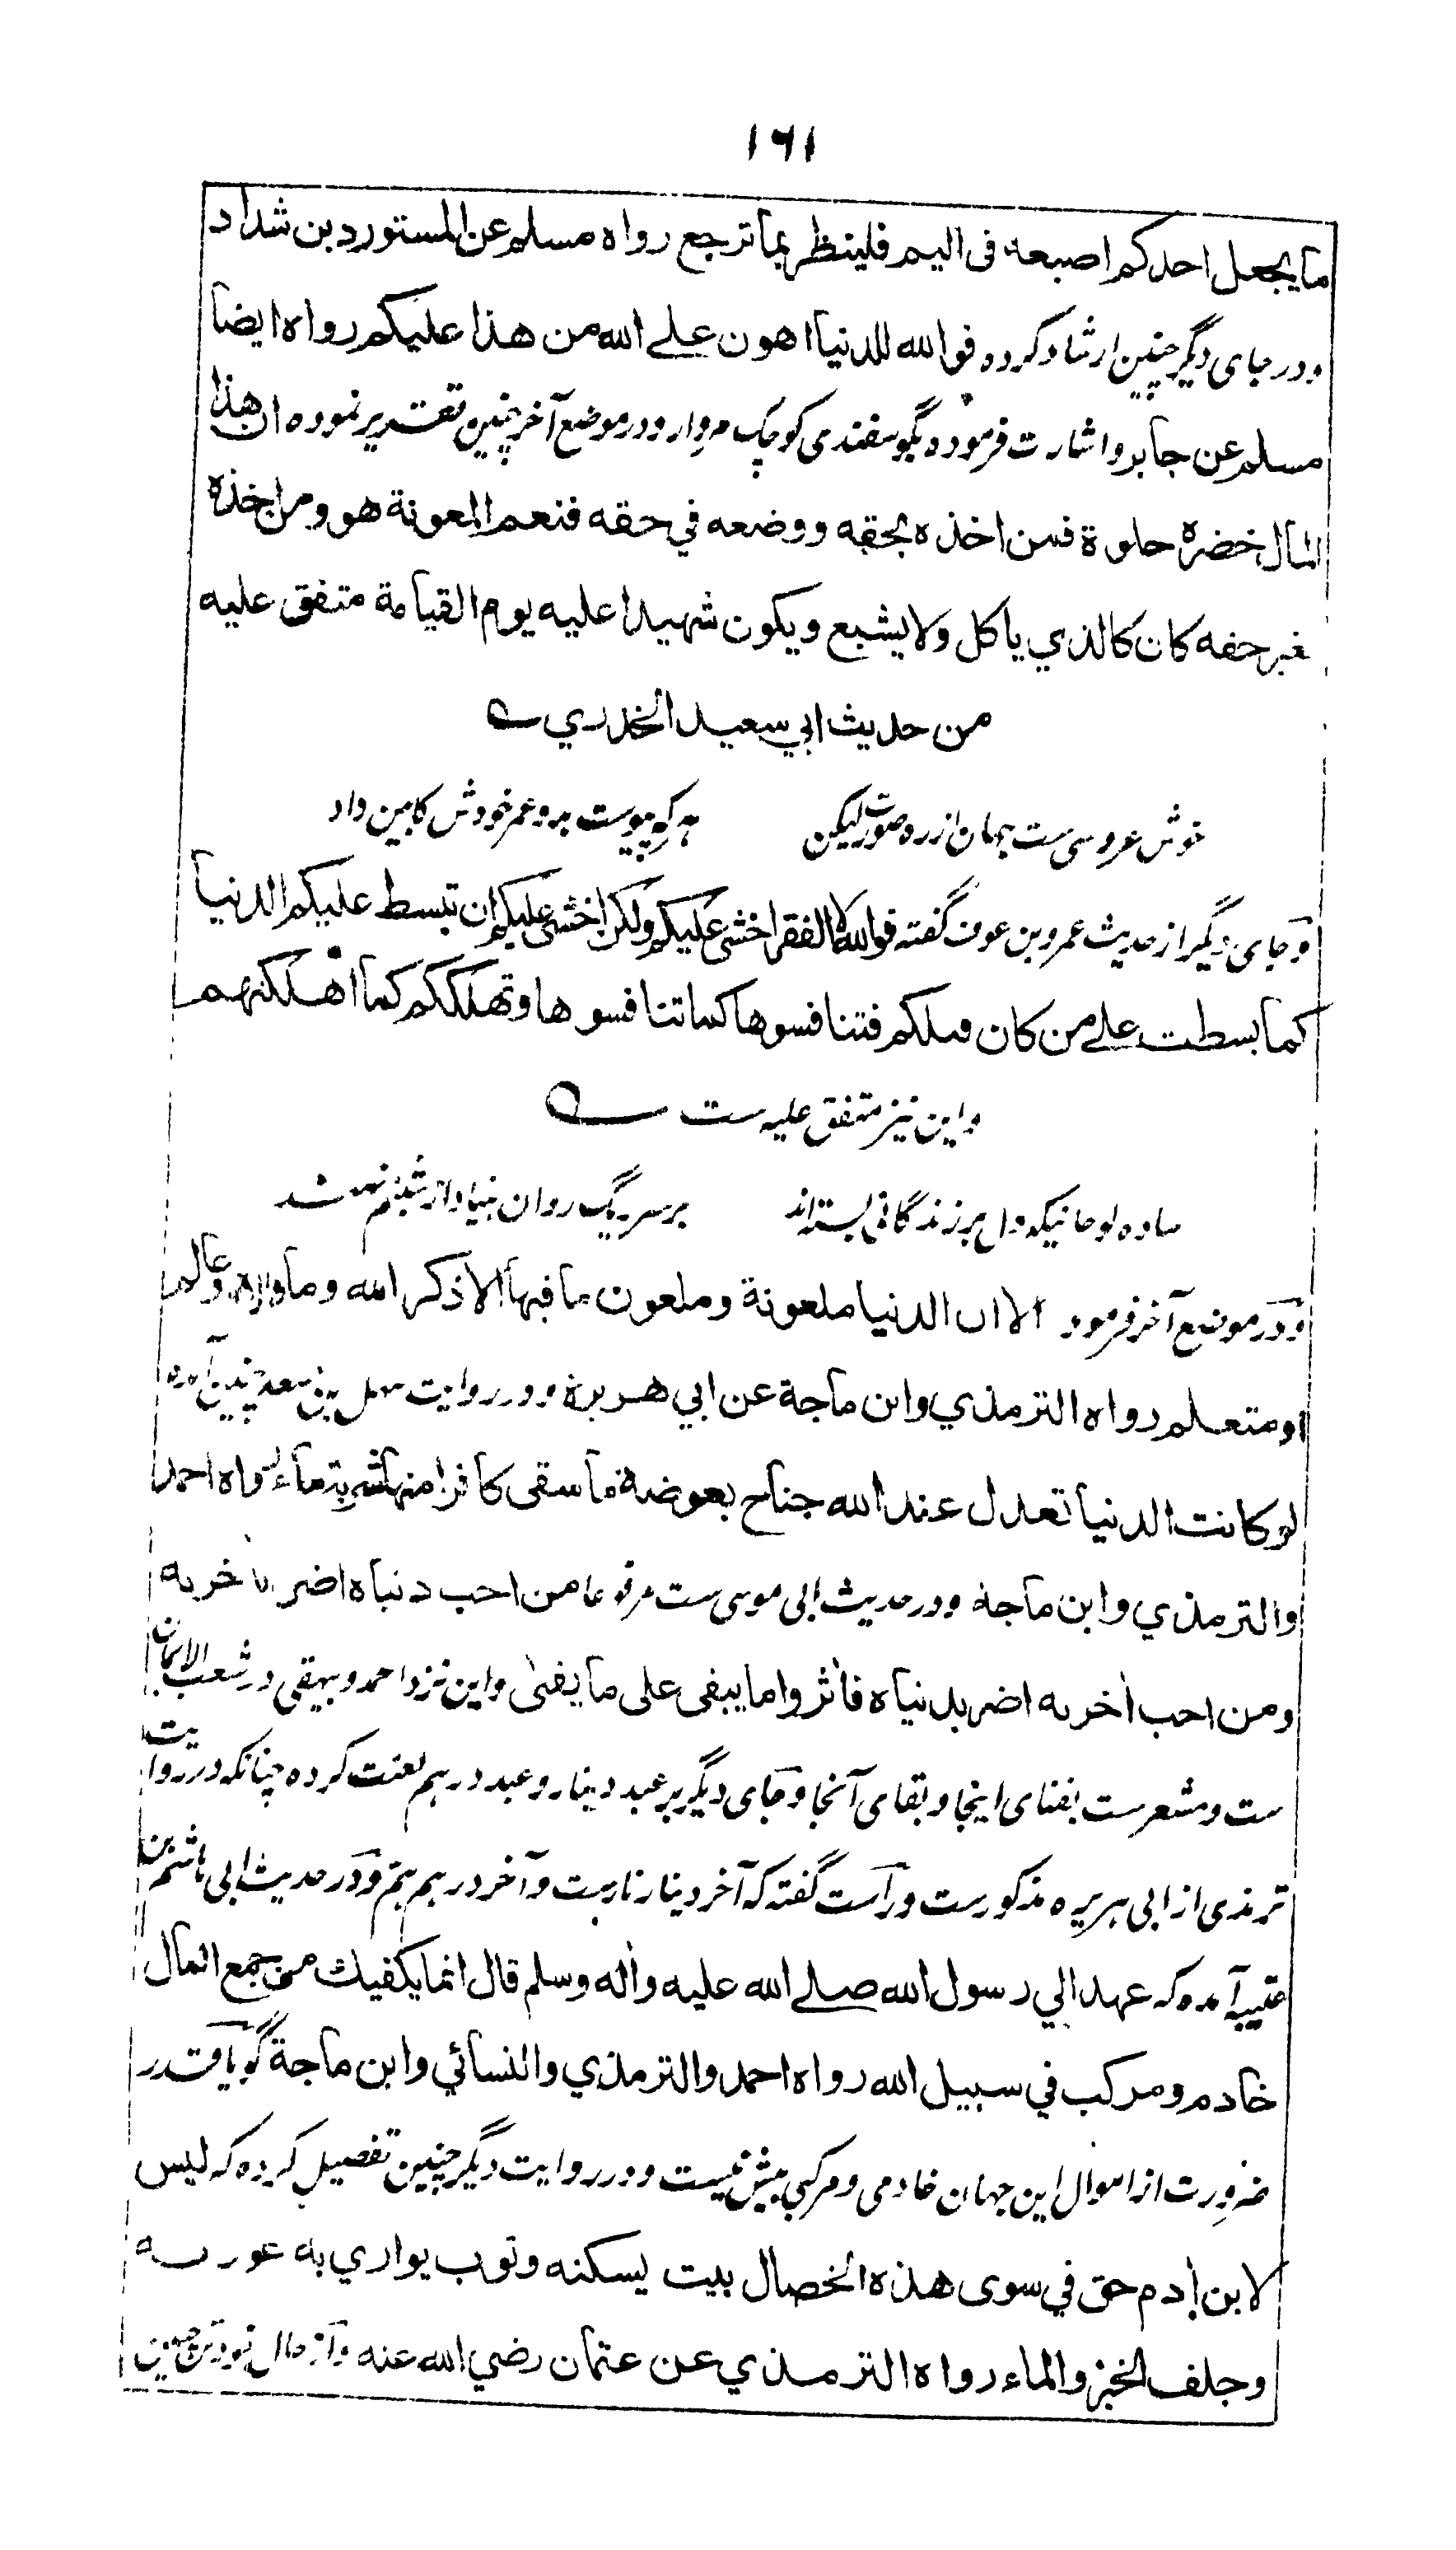 ۱۶۱
ما يجعل احدكم اصبعه فى اليم فلينظر بما ترجع رواه مسلم عن المستورد بن شداد
ودر جاى ديگر چنين ارشاد كرده فوالله للدنيا اهون على الله من هذا عليكم رواه ايضا
مسلم عن جابر واشارت فرموده بگوسفندى كوچك مردار ودر موضع آخر چنين تقرير نموده ان هذا
المال خضرة حلوة فمن اخذه بحقه ووضعه في حقه فنعم المعونة هو ومن اخذه
بغير حقه كان كالذي ياكل ولا يشبع ويكون شهيدا عليه يوم القيامة متفق عليه
من حديث ابي سعيد الخدري ے
خوش عروسى ست جهان از ره صورت ليكن هر كه پيوست بدو عمر خودش كابين داد
وجاى ديگر از حديث عمرو بن عوف گفته فوالله لا الفقر اخشى عليكم ولكن اخشى عليكم ان تبسط عليكم الدنيا
كما بسطت على من كان قبلكم فتنافسوها كما تنافسوها وتهلككم كما اهلكتهم
واين نيز متفق عليه ست ے
ساده لوحانيكه دل بر زندگانى بسته اند بر سر ريگ روان بنياد از شبنم نهند
ودر موضع آخر فرمود الا ان الدنيا ملعونة وملعون ما فيها الا ذكر الله وما والاه وعالم
او متعلم رواه الترمذي وابن ماجة عن ابي هريرة ودر روايت سهل بن سعد چنين آمده
لو كانت الدنيا تعدل عند الله جناح بعوضة ما سقى كافرا منها شربة ماء رواه احمد
والترمذي وابن ماجة ودر حديث ابى موسى ست مرفوعا من احب دنياه اضر باخرته
ومن احب اخرته اضر بدنياه فاثروا ما يبقى على ما يفنى واين نزد احمد وبيهقى در شعب الايمان
ست ومشعر ست بفناى اينجا وبقاى آنجا وجاى ديگر بر عبد دينار وعبد درهم لعنت كرده چنانكه در روايت
ترمذى از ابى هريره مذكور ست وراست گفته كه آخر دينار نار ست وآخر درهم هم ودر حديث ابى هاشم بن
عتبه آمده كه عهد الي رسول الله صلى الله عليه واله وسلم قال انما يكفيك من جمع المال
خادم ومركب في سبيل الله رواه احمد والترمذي والنسائي وابن ماجة گويا قدر
ضرورت از اموال اين جهان خادمى ومركبى بيش نيست ودر روايت ديگر چنين تفصيل كرده كه ليس
لابن ادم حق في سوى هذه الخصال بيت يسكنه وثوب يواري به عورته
وجلف الخبز والماء رواه الترمذي عن عثمان رضي الله عنه واز حال خود چنين